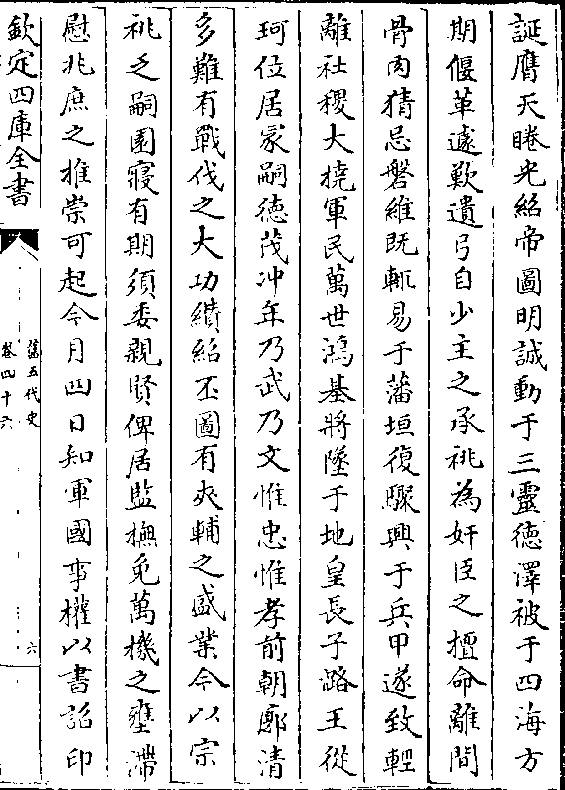 誕膺天睠光紹帝圖明誠動于三靈德澤被于四海方
期偃革遽歎遺弓自少主之承祧為奸臣之擅命離間
骨肉猜忌磐維既輒易于藩垣復驟興于兵甲遂致輕
離社稷大撓軍民萬世鴻基將墜于地皇長子潞王從
珂位居冢嗣德茂冲年乃武乃文惟忠惟孝前朝廓清
多難有戰伐之大功纘紹丕圖有夾輔之盛業今以宗
祧乏嗣園寢有期須委親賢俾居監撫免萬機之壅滯
慰兆庶之推崇可起今月四日知軍國事權以書詔印
欽定四庫全書
舊五代史
卷四十六
六